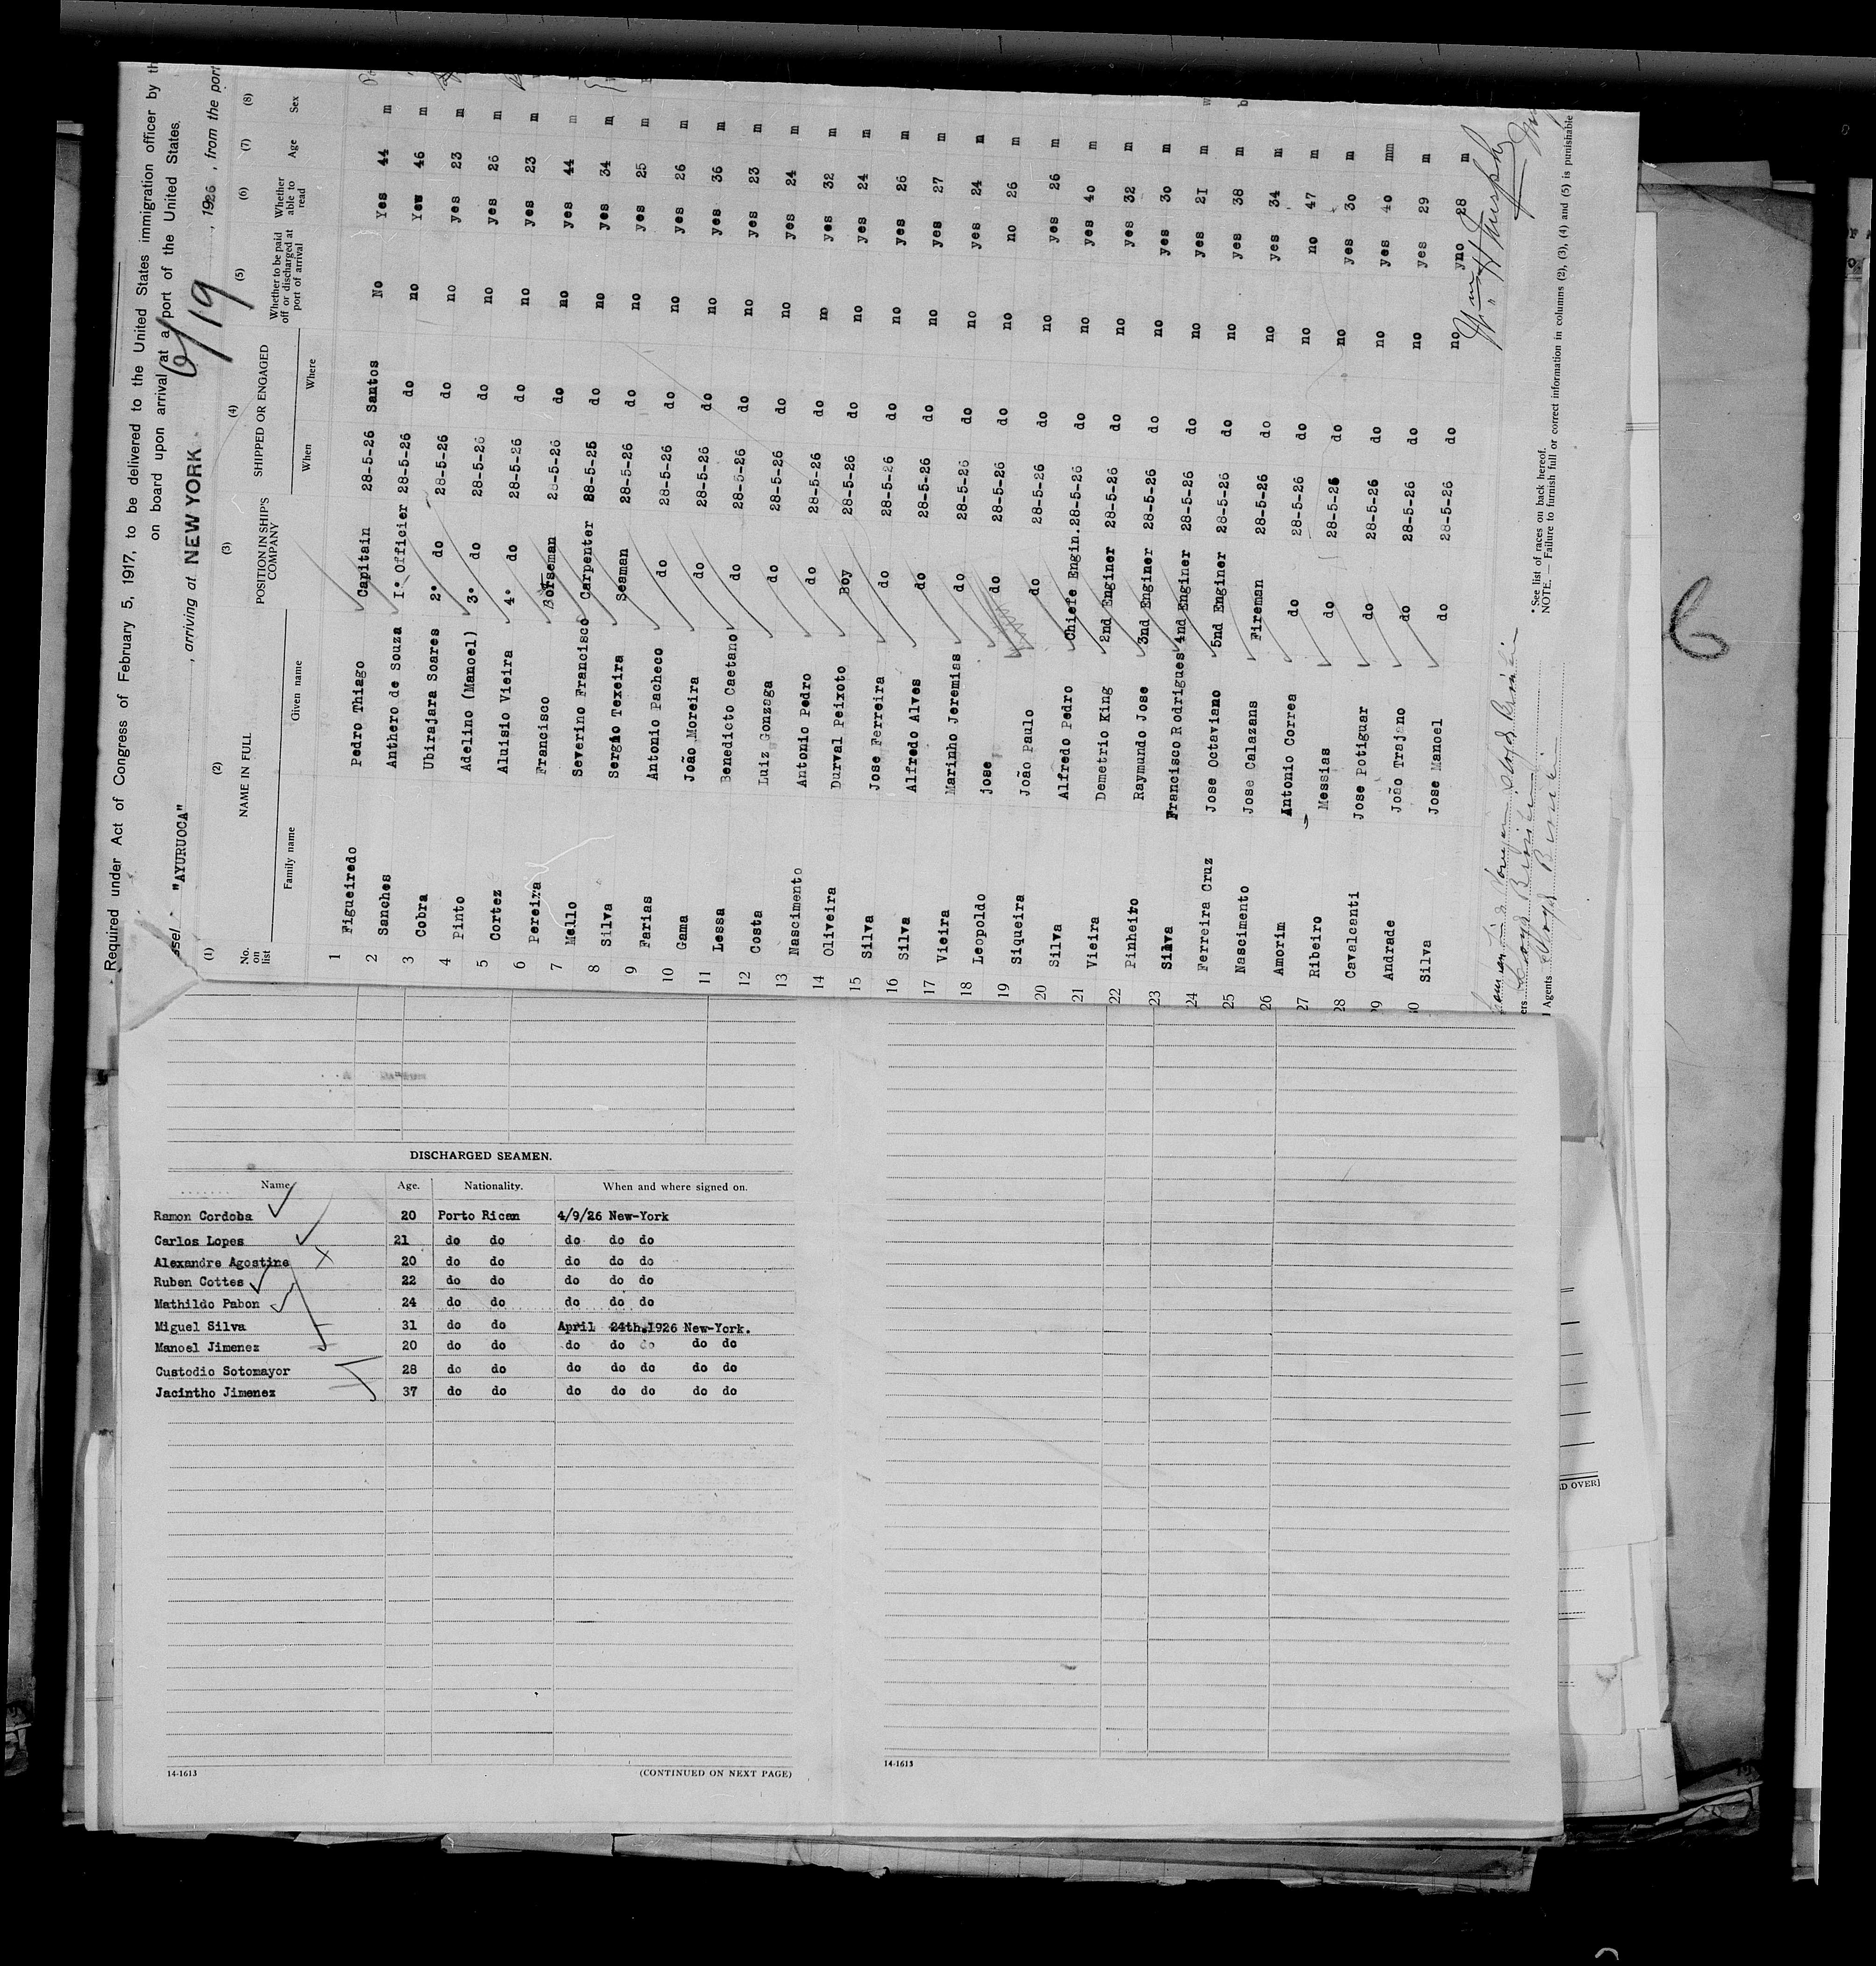 Required under Act of Congress of February 5, 1917, to be delivered to the United States immigration officer by th
on board upon arrival at a port of the United States.
ssel "AYURUOCA" , arriving at NEW YORK , 1926 , from the port
6/19
(1) (2) (3) (4) (5) (6) (7) (8)
No. on list NAME IN FULL POSITION IN SHIP'S COMPANY SHIPPED OR ENGAGED Whether to be paid off or discharged at port of arrival Whether able to read Age Sex
Family name Given name When Where
1 Figueiredo Pedro Thiago Capitain 28-5-26 Santos No Yes 44 m
2 Sanches Anthero de Souza I° Officier 28-5-26 do no Yew 46 m
3 Cobra Ubirajara Soares 2° do 28-5-26 do no yes 23 m
4 Pinto Adelino (Manoel) 3° do 28-5-26 do no yes 26 m
5 Cortez Aluisio Vieira 4° do 28-5-26 do no yes 23 m
6 Pereira Francisco 28-5-26 do no yes 44 m
7 Mello Severino Francisco Carpenter 28-5-26 do no yes 34 m
8 Silva Sergio Texeira Seaman 28-5-26 do no yes 25 m
9 Farias Antonio Pacheco do 28-5-26 do no yes 26 m
10 Gama João Moreira do 28-5-26 do no yes 36 m
11 Lessa Benedicto Caetano do 28-5-26 do no yes 23 m
12 Costa Luiz Gonzaga do 28-5-26 do no yes 24 m
13 Nascimento Antonio Pedro do 28-5-26 do no yes 32 m
14 Oliveira Durval Peixoto Boy 28-5-26 do no yes 24 m
15 Silva Jose Ferreira do 28-5-26 do no yes 26 m
16 Silva Alfredo Alves do 28-5-26 do no yes 27 m
17 Vieira Marinho Jeremias do 28-5-26 do no yes 24 m
18 Leopoldo jose do 28-5-26 do no no 26 m
19 Siqueira João Paulo do 28-5-26 do no yes 26 m
20 Silva Alfredo Pedro Chiefe Engin. 28-5-26 do no yes 40 m
21 Vieira Demetrio King 2nd Enginer 28-5-26 do no yes 32 m
22 Pinheiro Raymundo Jose 3nd Enginer 28-5-26 do no yes 30 m
23 Silva Francisco Rodrigues 4nd Enginer 28-5-26 do no yes 21 m
24 Ferreira Cruz Jose Octaviano 5nd Enginer 28-5-26 do no yes 38 m
25 Nascimento Jose Calazans Fireman 28-5-26 do no yes 34 m
26 Amorim Antonio Correa do 28-5-26 do no no 47 m
27 Ribeiro Messias do 28-5-26 do no yes 30 m
28 Cavalcanti Jose Potiguar do 28-5-26 do no yes 40 mm
29 Andrade João Trajano do 28-5-26 do no yes 29 m
30 Silva Jose Manoel do 28-5-26 do no yno 28 m
ers
l Agents
* See list of races on back hereof.
NOTE. — Failure to furnish full or correct information in columns (2), (3), (4) and (5) is punishable
6
DISCHARGED SEAMEN.
Name Age. Nationality. When and where signed on.
Ramon Cordoba 20 Porto Rican 4/9/26 New-York
Carlos Lopes 21 do do do do do
Alexandre Agostine 20 do do do do do
Ruben Cottes 22 do do do do do
Mathildo Pabon 24 do do do do do
Miguel Silva 31 do do April 24th.1926 New-York.
Manoel Jimenez 20 do do do do do do do
Custodio Sotomayor 28 do do do do do do do
Jacintho Jimenez 37 do do do do do do do
14-1613 (CONTINUED ON NEXT PAGE)
14-1613
D OVER]